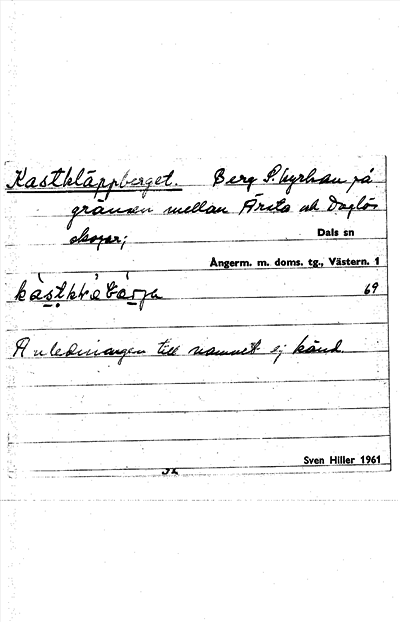 Kastkläppberget. Berg S. kyrkan på
gränsen mellan Ärsta och
skogar;
Dals sn
Ångerm. m. doms. tg., Västern. 1
69
Anledningen till namnet ej känd.
Sven Hiller 1961